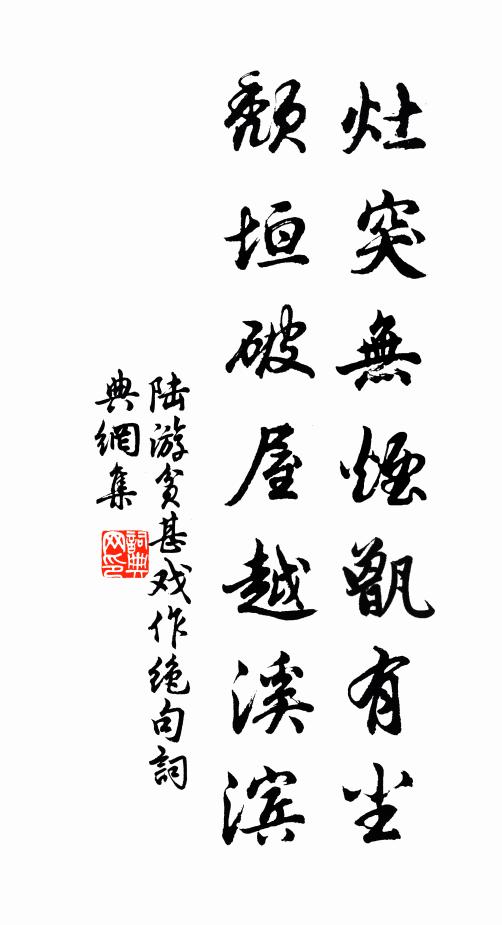 灶突無煙甑有尘
颓垣破屋越溪滨
陆游贫甚戏作绝句詞
典網集
詞典
网印